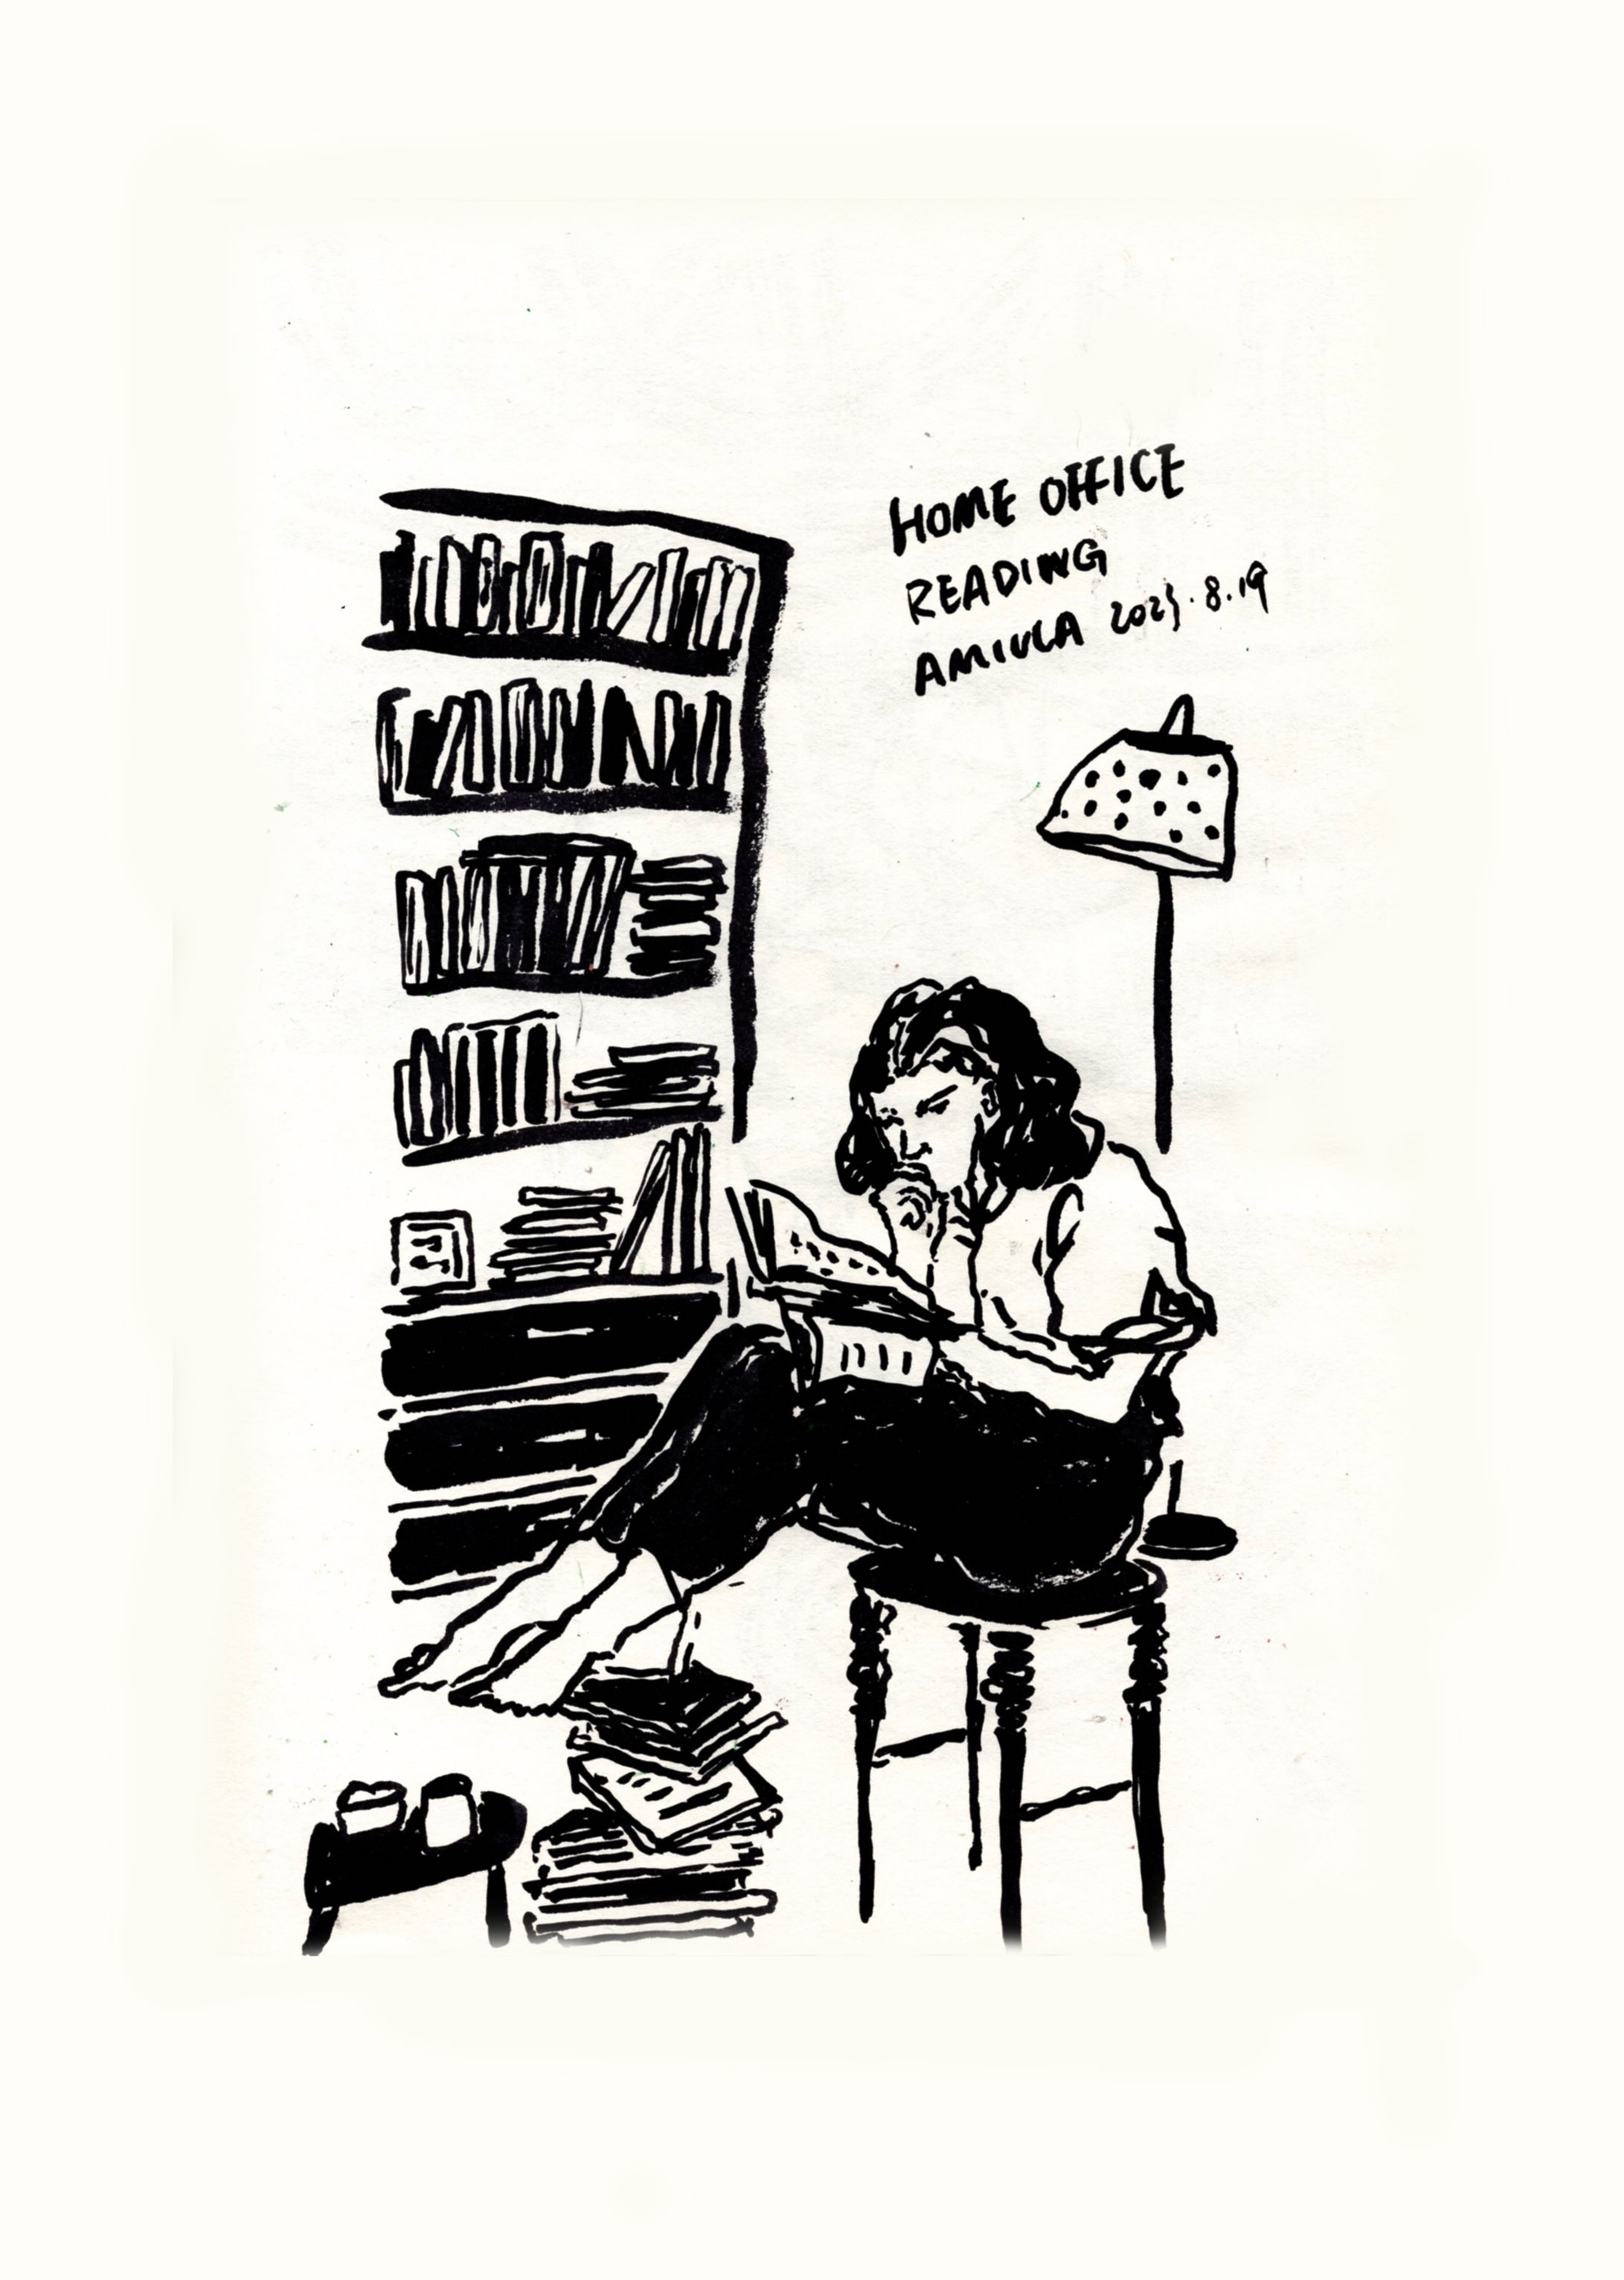 HOME OFFICE
READING
AMIULA 2023.8.19